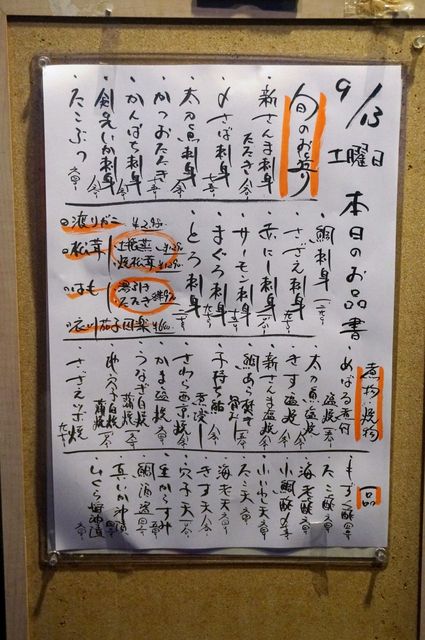 9/13
土曜日
本日のお品書
旬のお造り
新さんま刺身
たたき
〆さば刺身
太刀魚刺身
かつおたたき
かんぱち刺身
剣先いか刺身
たこぶつ
鯛刺身
さざえ刺身
赤にし刺身
サーモン刺身
まぐろ刺身
とろ刺身
渡りガニ
松茸
土瓶蒸
焼松茸
はも
湯引き
たたき
衣川茄子田楽
煮物・焼物
めばる煮付
塩焼
太刀魚塩焼
きす塩焼
新さんま塩焼
鯛あら煮
子持ち鮎
さわら西京焼
かま塩焼
うなぎ白焼
蒲焼
穴子白焼
蒲焼
さざえツボ焼
一品
もずく酢
たこ酢
海老酢
小鯛酢〆
小いわし天
たこ天
海老天
きす天
穴子天
生からすみ
鯛酒盗
真いか沖漬
いくら醤油漬